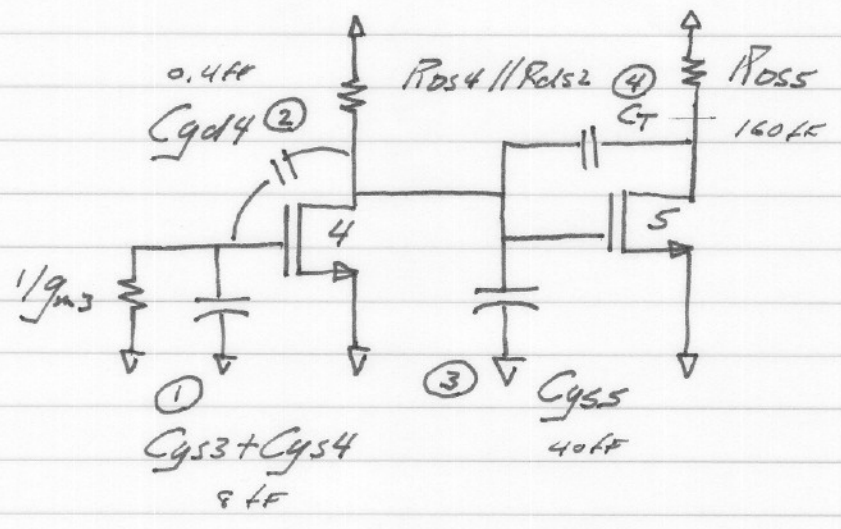 0.4fF
Cgd4 ②
RDS4 // Rds2
④
CT
RDS5
160fF
4
5
1/gm3
①
Cgs3+Cgs4
8fF
③
Cgs5
40fF